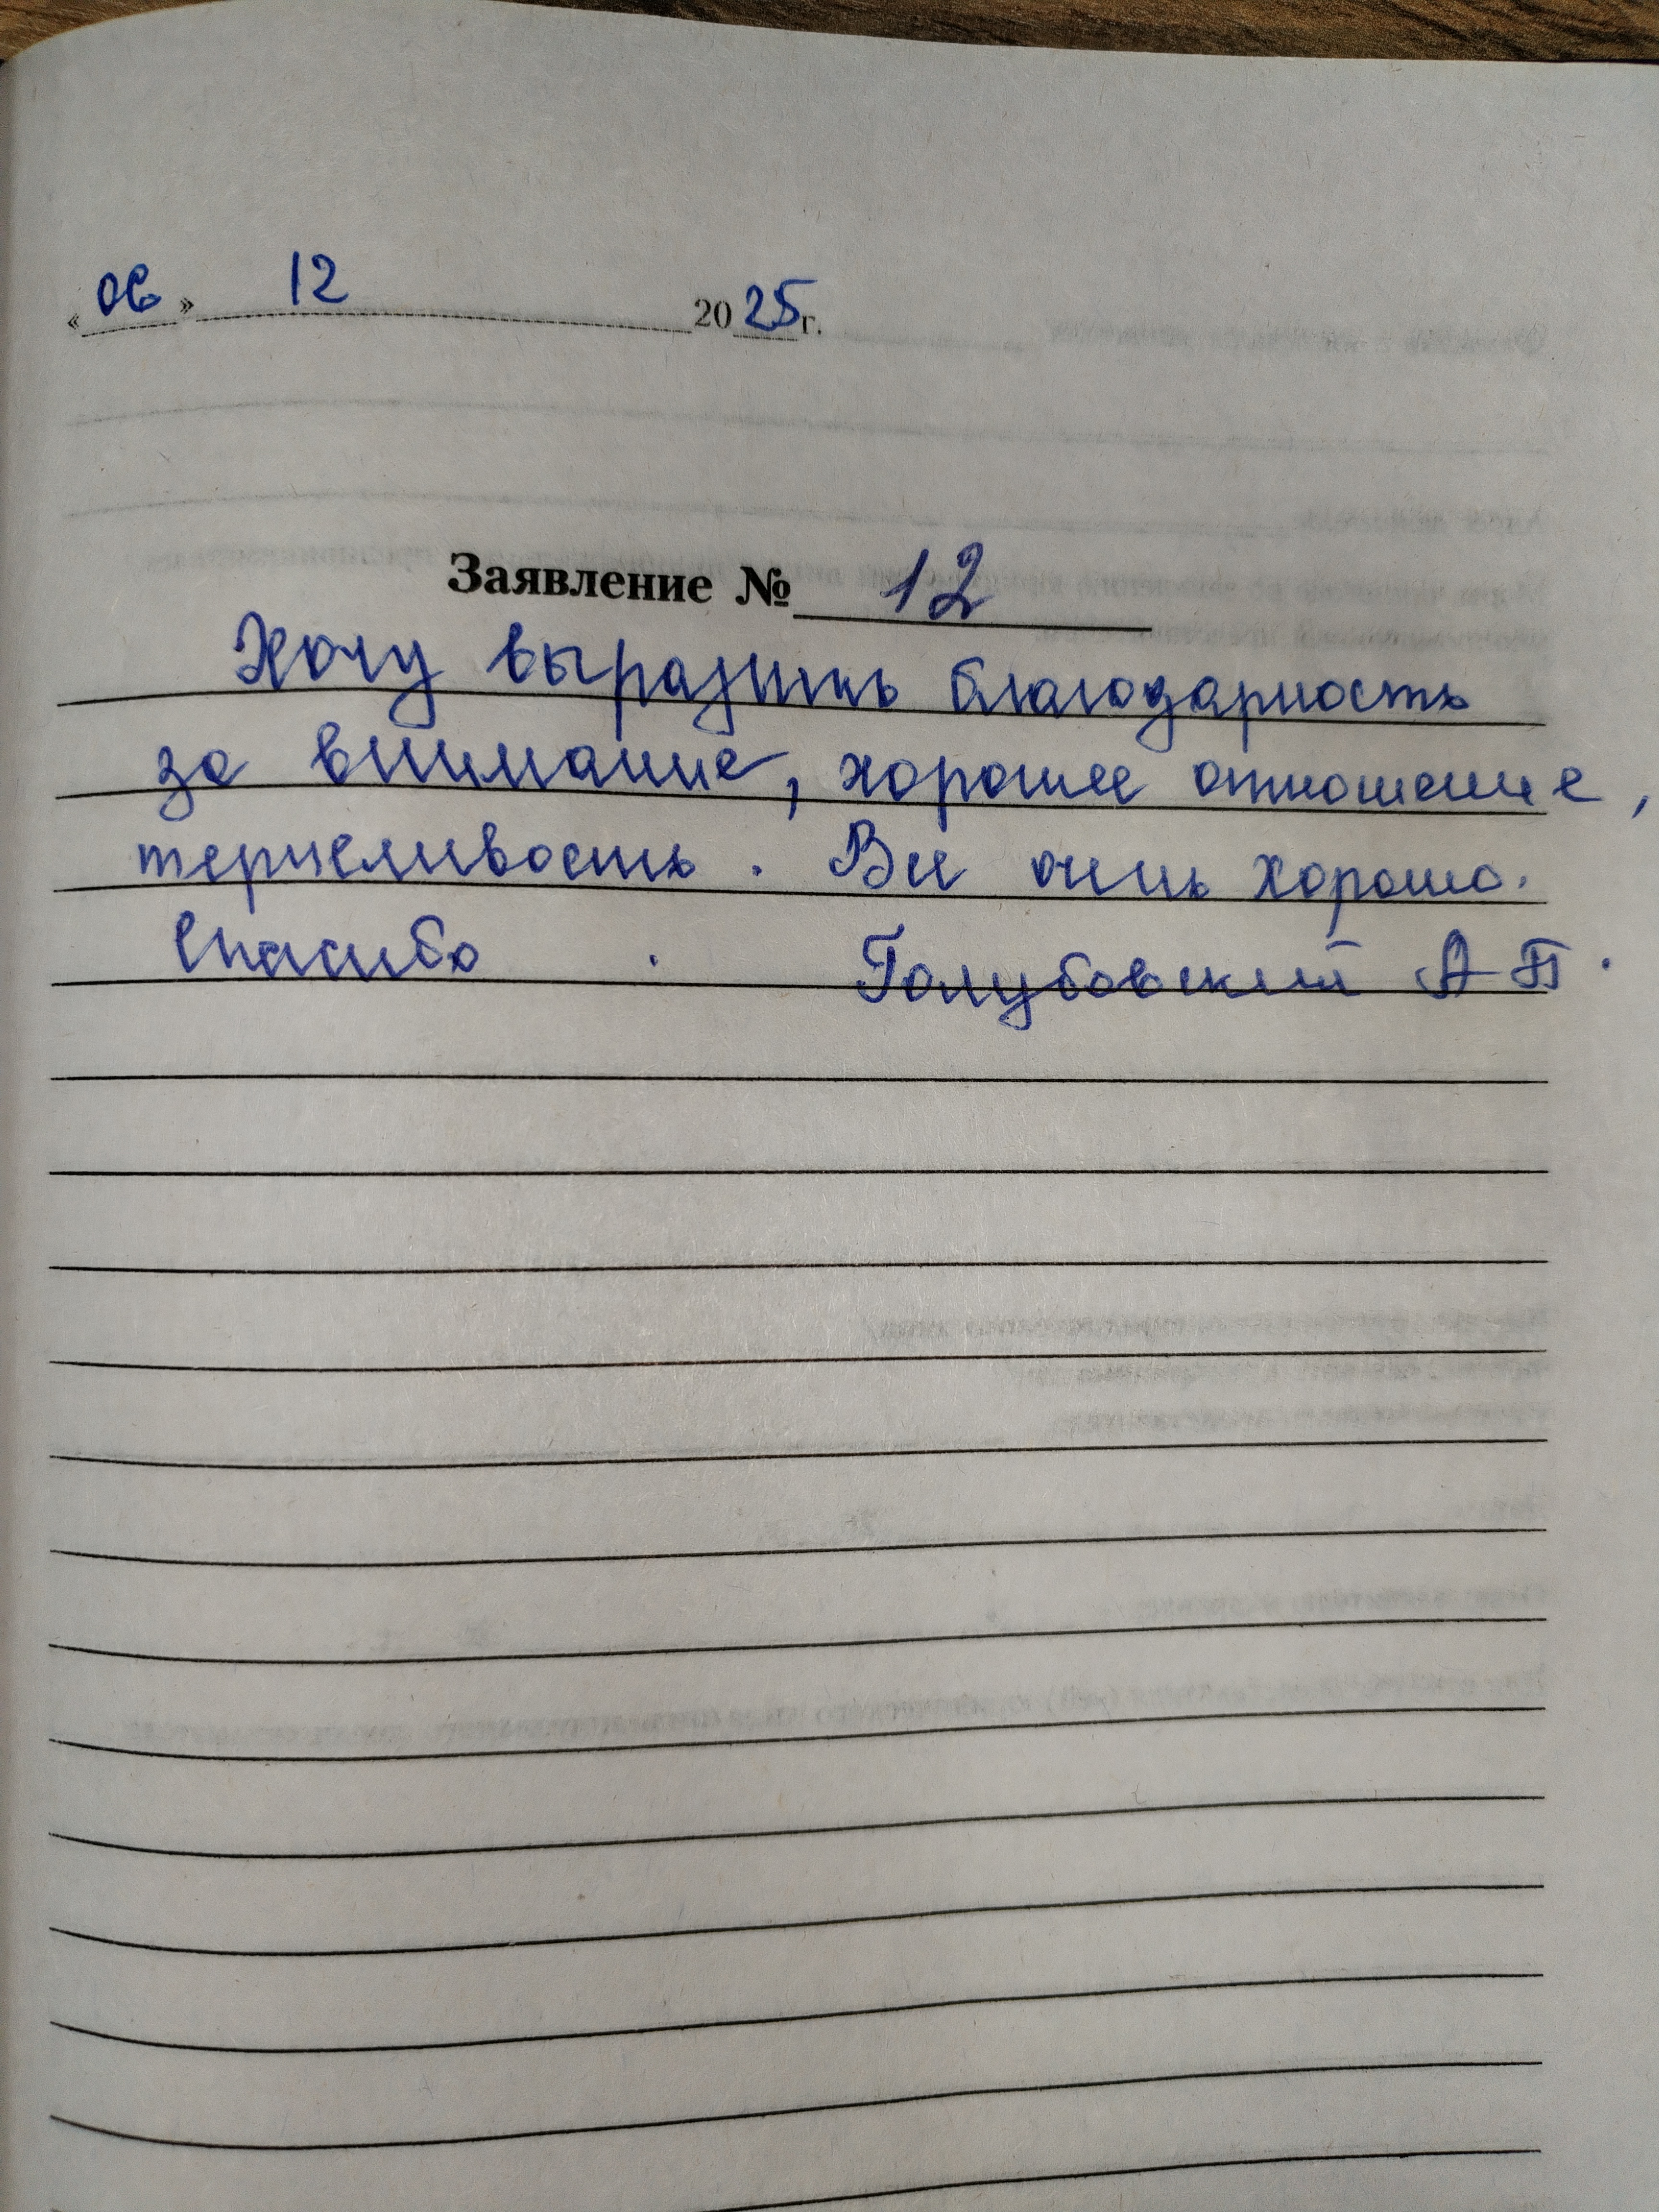 «06» 12 2025г.
Заявление № 12
Хочу выразить благодарность
за внимание, хорошее отношение,
терпеливость. Все очень хорошо.
Спасибо. Голубовский А П.